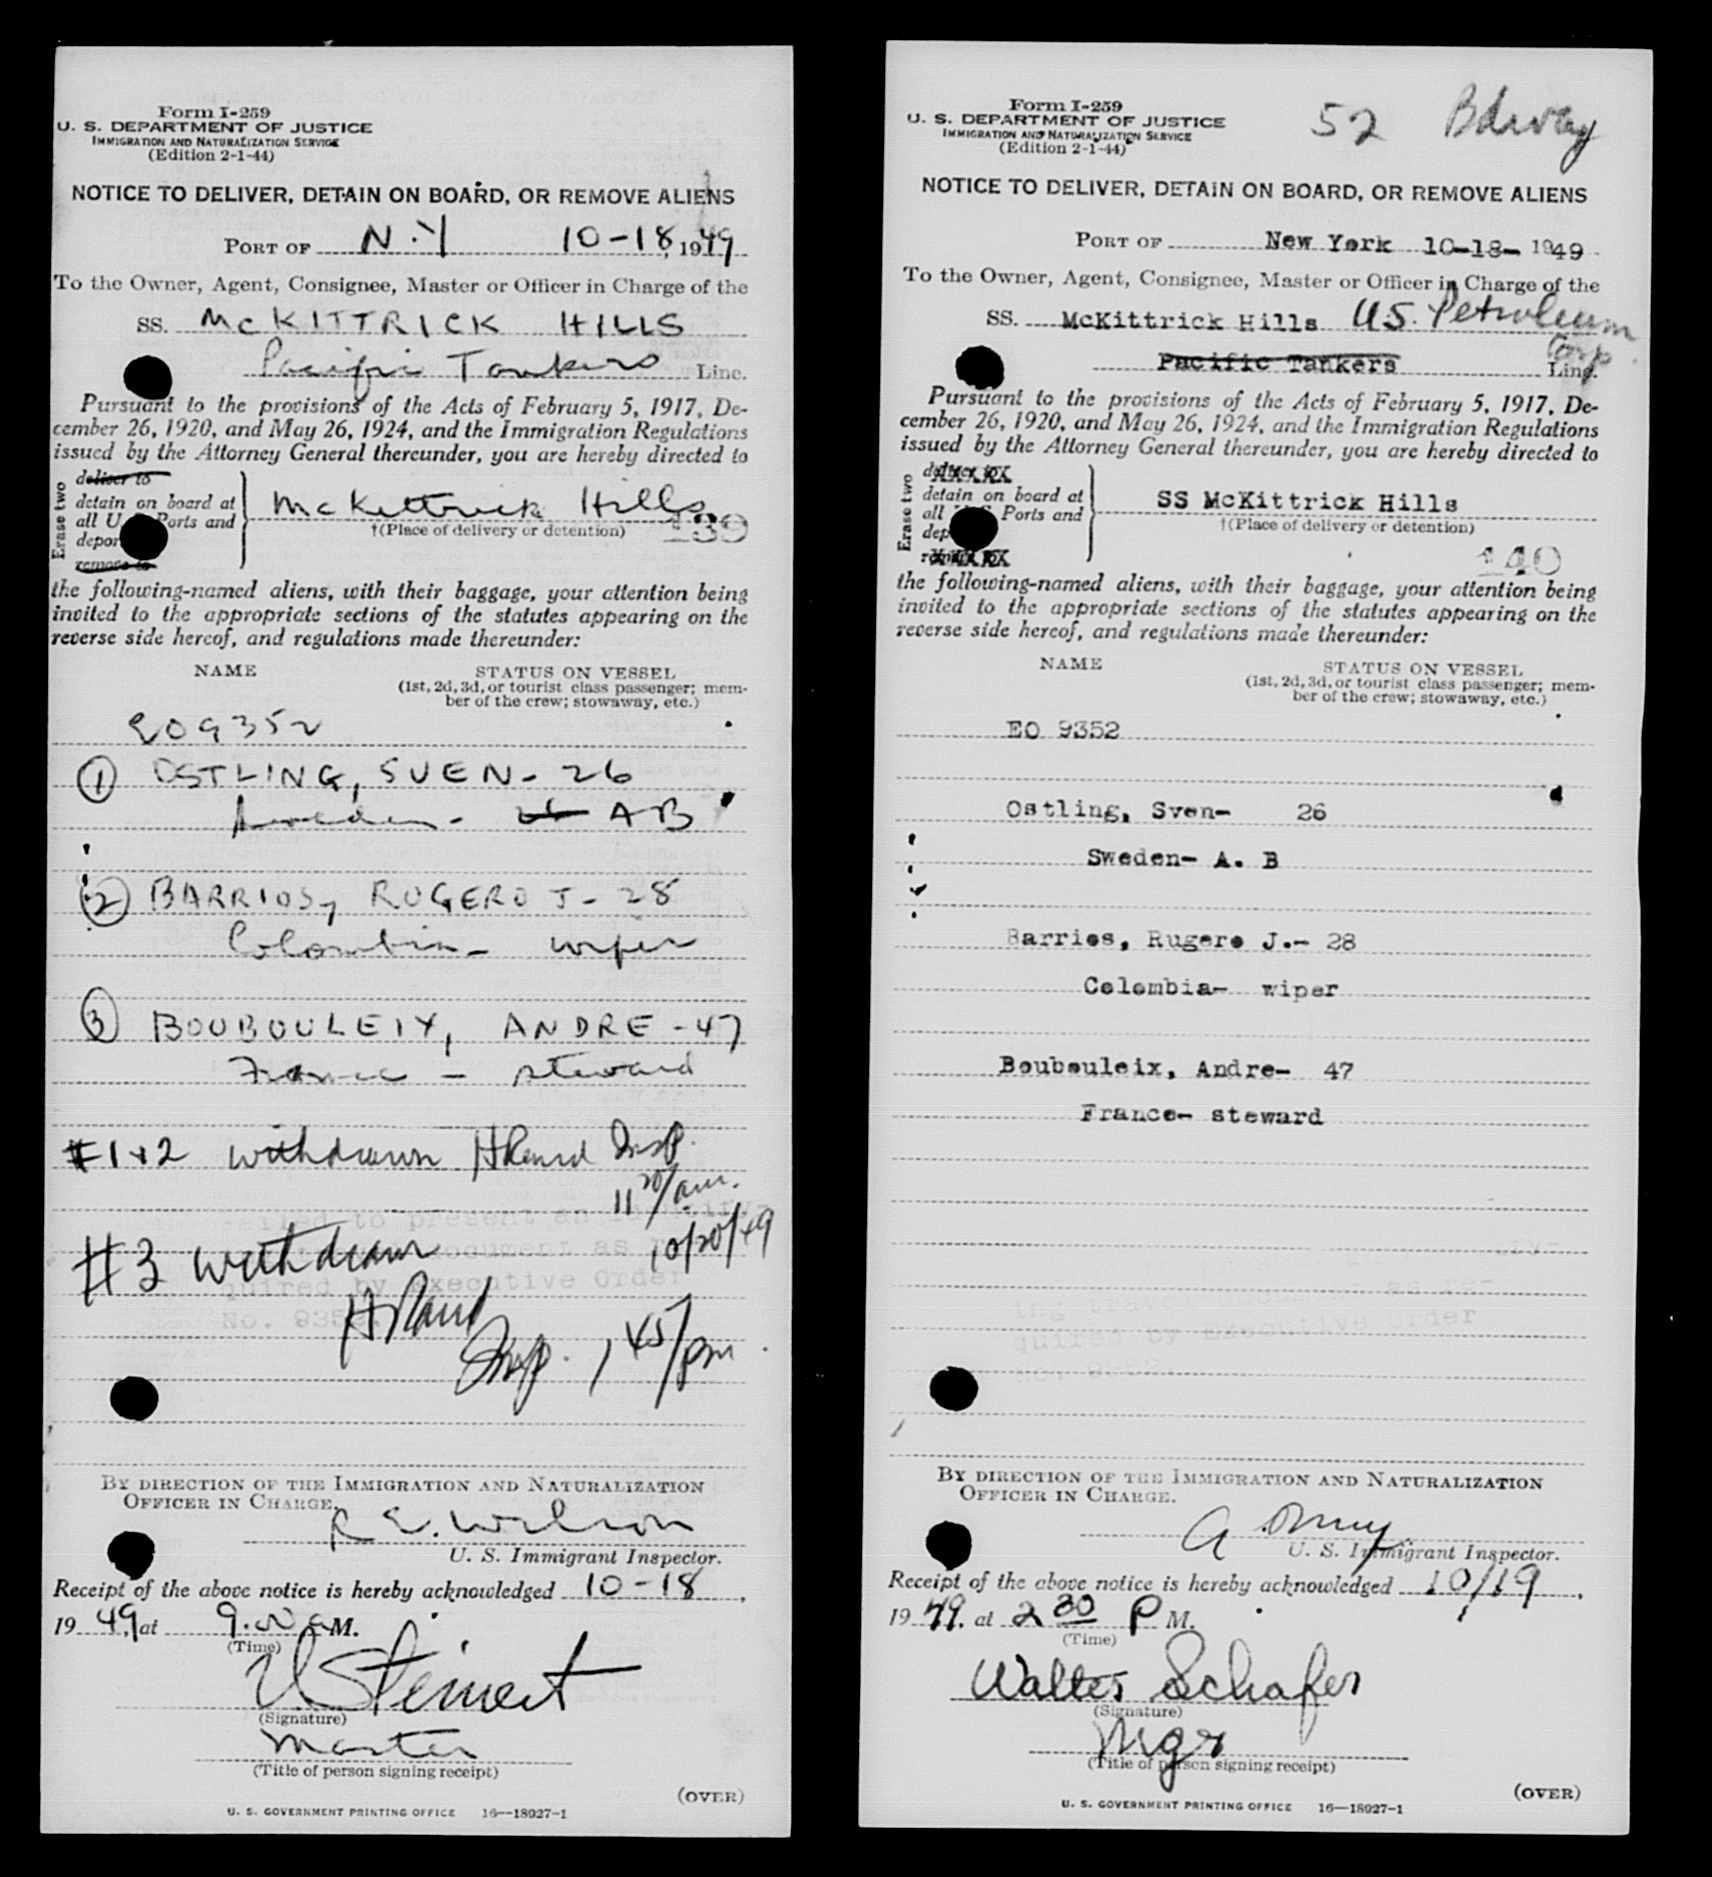 Form I-259
U. S. DEPARTMENT OF JUSTICE
IMMIGRATION AND NATURALIZATION SERVICE
(Edition 2-1-44)
NOTICE TO DELIVER, DETAIN ON BOARD, OR REMOVE ALIENS
PORT OF N.Y 10-18, 1949
To the Owner, Agent, Consignee, Master or Officer in Charge of the
SS. McKITTRICK HILLS
Pacific Tankers Line.
Pursuant to the provisions of the Acts of February 5, 1917, De-
cember 26, 1920, and May 26, 1924, and the Immigration Regulations
issued by the Attorney General thereunder, you are hereby directed to
Erase two
deliver to
detain on board at
all U. Ports and
depor
remove to
McKittrick Hills
†(Place of delivery or detention)
139
the following-named aliens, with their baggage, your attention being
invited to the appropriate sections of the statutes appearing on the
reverse side hereof, and regulations made thereunder:
NAME STATUS ON VESSEL
(1st, 2d, 3d, or tourist class passenger; mem-
ber of the crew; stowaway, etc.)
EO9352
1 OSTLING, SVEN - 26
Sweden - AB
2 BARRIOS, RUGERO J - 28
Colombia - wiper
3 BOUBOULEIX, ANDRE - 47
France - steward
#1+2 withdrawn Insp.
11 20/am.
10/20/49
failed to present an identify-
document as re-
quired by Executive Order
No. 9352.
#3 withdrawn
Insp. 1 45/pm.
BY DIRECTION OF THE IMMIGRATION AND NATURALIZATION
OFFICER IN CHARGE.
R E. Wilson
U. S. Immigrant Inspector.
Receipt of the above notice is hereby acknowledged 10-18,
1949, at 9.00 a M.
(Time)
V Steinert
(Signature)
Master
(Title of person signing receipt)
(OVER)
U. S. GOVERNMENT PRINTING OFFICE 16—18927-1
Form I-259
U. S. DEPARTMENT OF JUSTICE
IMMIGRATION AND NATURALIZATION SERVICE
(Edition 2-1-44)
52 Bdway
NOTICE TO DELIVER, DETAIN ON BOARD, OR REMOVE ALIENS
PORT OF New York 10-18- 1949
To the Owner, Agent, Consignee, Master or Officer in Charge of the
SS. McKittrick Hills U.S. Petroleum
Corp
Pacific Tankers Line.
Pursuant to the provisions of the Acts of February 5, 1917, De-
cember 26, 1920, and May 26, 1924, and the Immigration Regulations
issued by the Attorney General thereunder, you are hereby directed to
Erase two
deliver to
detain on board at
all U. S. Ports and
dep
remove to
SS McKittrick Hills
†(Place of delivery or detention)
140
the following-named aliens, with their baggage, your attention being
invited to the appropriate sections of the statutes appearing on the
reverse side hereof, and regulations made thereunder:
NAME STATUS ON VESSEL
(1st, 2d, 3d, or tourist class passenger; mem-
ber of the crew; stowaway, etc.)
EO 9352
Ostling, Sven- 26
Sweden- A. B
Barrios, Rugero J.- 28
Colombia- wiper
Boubouleix, Andre- 47
France- steward
as re-
quired by Executive Order
BY DIRECTION OF THE IMMIGRATION AND NATURALIZATION
OFFICER IN CHARGE.
U. S. Immigrant Inspector.
Receipt of the above notice is hereby acknowledged 10/19,
1949, at 2 30 P M.
(Time)
Walter Schafer
(Signature)
Mgr
(Title of person signing receipt)
(OVER)
U. S. GOVERNMENT PRINTING OFFICE 16—18927-1